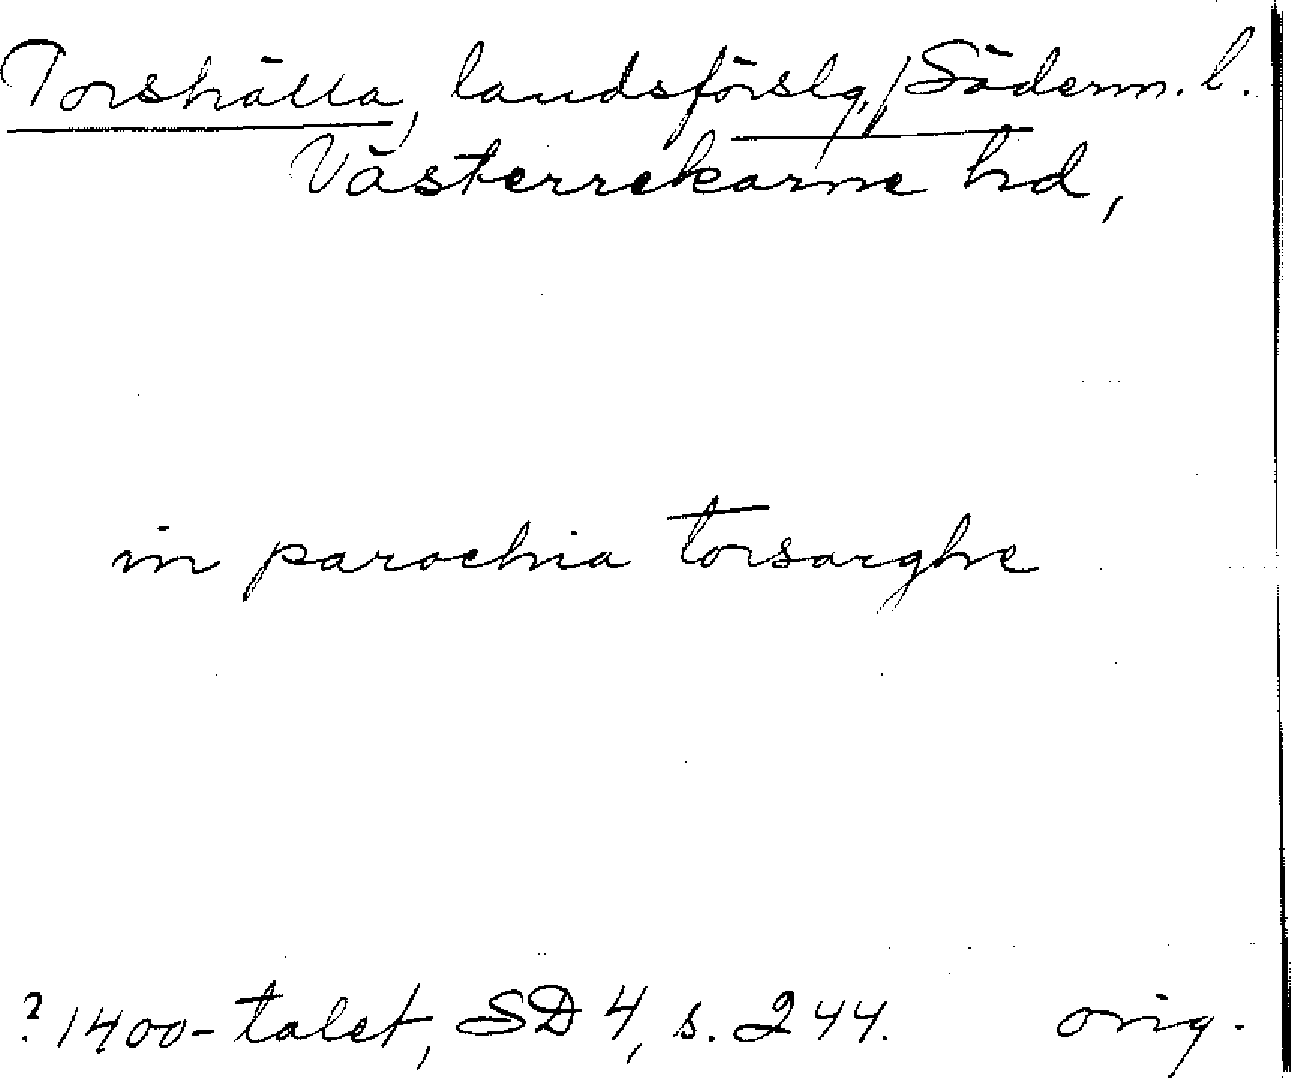 Torshälla, landsförslg,/Söderm. l.
Västerrekarne hd,
in parochia torsarghe
? 1400-talet, SD 4, s. 244. orig.